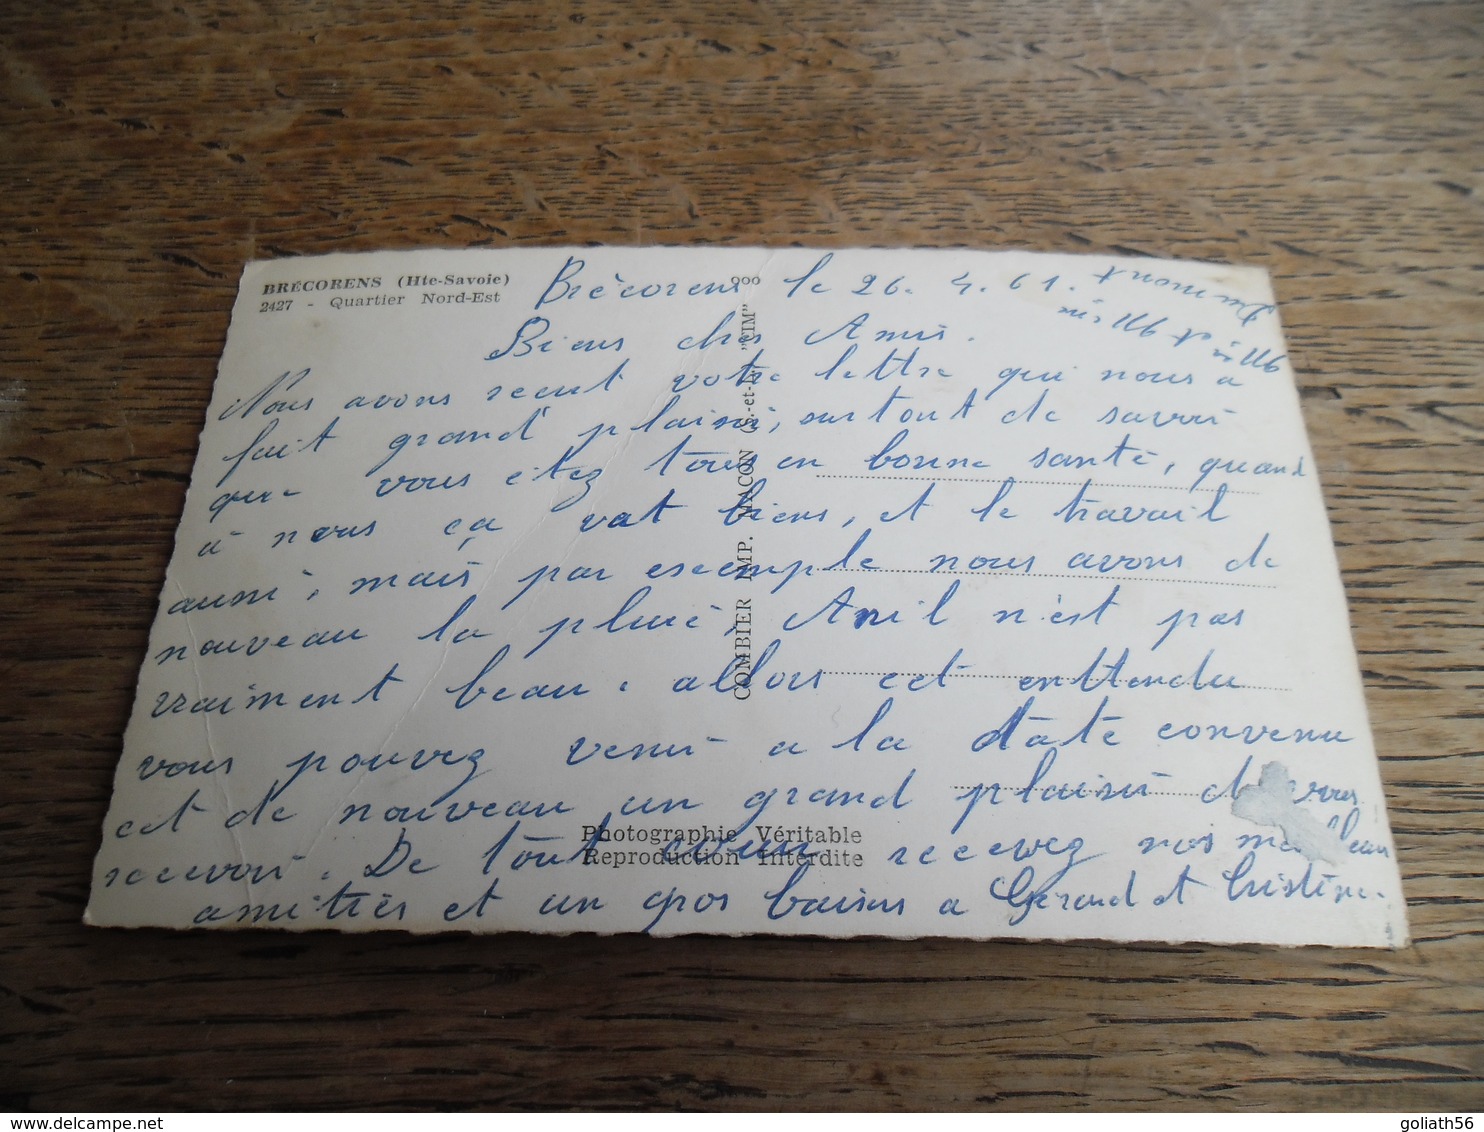 BRÉCORENS (Hte-Savoie)
2427 - Quartier Nord-Est
COMBIER IMP. MACON (S.-et-L.) "CIM"
Photographie Véritable
Reproduction Interdite
Brécorens le 26. 4. 61.
Biens chés Amis.
Nous avons recut votre lettre qui nous a
fait grand plaisir, surtout de savoir
que vous êtez tous en bonne santé, quand
à nous ça vat biens, et le travail
aussi, mais par exemple nous avons de
nouveau la pluie, Avril n'est pas
vraiment beau. allors cet enttendu
vous pouvez venir a la date convenu
cet de nouveau un grand plaisir de vous
recevoir. De tout coeur recevez nos
amitiés et un gros baisers a Gérard et Cristine.
Mr et Mme
goliath56